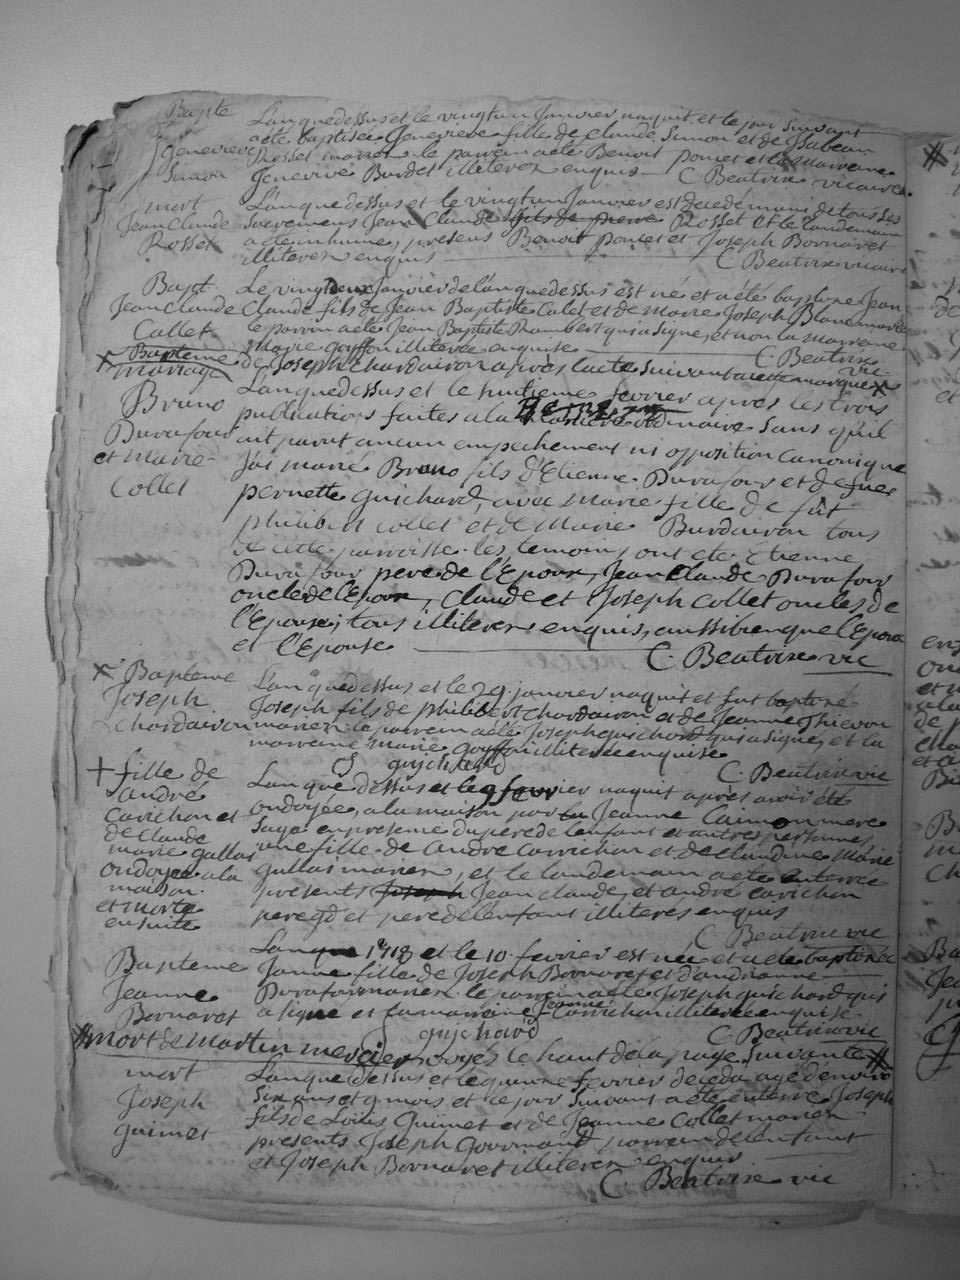 Bapte
Genevieve
Simon
L'anquedessus et le vingtun Janvier naquit et le jour suivant
aeté baptisée Genevieve fille de claude Simon et de Isabeau
Rosset mariez le parrein aeté Benoit poncet et la Marreine
Genevive Burdet illiterez enquis C Beatrix vicaire
mort
Jean Claude
Rosset
L'anquedessus et le vingtun Janvier est decedé muni de tous ses
sacremens Jean Claude fils de pierre Rosset et le landemain
aeté inhumé, presens Benoit poncet et Joseph Bornaret
illiterez enquis C Beatrix vicaire
Bapt
Jean Claude
Collet
Le vingtdeux Janvier de l'anquedessus est né et aeté baptisé Jean
Claude fils de Jean Baptiste Colet et de Marie Joseph Blanc mariez
le parrin aeté Jean Baptiste Rambert qui a signe, et non la marreine
Marie Goyffon illiterée enquise C Beatrix
vic
x Bapteme de Joseph Chardairon après lacte suivant acette marque x
mariage
Bruno
Durafour
et Marie
Collet
L'anquedessus et le huitieme fevrier après les trois
publications faites a la maniere ordinaire sans qu'il
ait parut aucun empechement ni opposition canonique
J'ai marié Bruno fils d'Etienne Durafour et de fue
pernette guichard, avec Marie fille de fût
philibert collet et de Marie Burdairon tous
de cette parroisse les temoins ont eté Etienne
Durafour pere de l'Epoux, Jean Claude Durafour
oncle de l'Epoux, Claude et Joseph Collet oncles de
l'Epouse; tous illiterez enquis, aussi bien que l'Epoux
et l'Epouse C. Beatrix vic
x Bapteme
Joseph
Chardairon
L'anquedessus et le 29 janvier naquit et fut baptisé
Joseph fils de philibert Chardairon et de Jeanne Thievon
mariez le parrein aeté Joseph guichard qui a signe, et la
marreine Marie Goyffon illiterée enquise
J guijchard C. Beatrix vic
+ fille de
andré
Carrichon et
de Claude
marie gallas
ondoyée a la
maison
et morte
ensuite
L'anquedessus et le 9 fevrier naquit après avoir été
ondoyée, a la maison par la Jeanne Cannon mere
sage en presence du pere de l'enfant et autres personnes
une fille de andré Carrichon et de claudine Marie
gallas mariez, et le landemain aeté enterrée
presents Joseph Jean claude, et andré carichon
pere gd et pere de l'enfant illiterés enquis
C Beatrix vic
Bapteme
Jeanne
Bornaret
L'anque 1718 et le 10 fevrier est née et aeté baptisée
Janne fille de Joseph Bornaret et d'andrianne
Durafour mariez le parrein aeté Joseph guichard qui
a signe et la marreine Jeanne Carrichon illiterée enquise
J guijchard C Beatrix vic
# mort de martin mercier, voyez le haut de la page suivante #
mort
Joseph
guimet
L'anquedessus et le quinze fevrier deceda agé denviron
six ans et 9 mois et le jour suivant aeté enterré Joseph
fils de Louis guimet et de Jeanne Collet mariez
presents Joseph gourmand parrein de l'enfant
et Joseph Bornaret illiterez enquis
C Beatrix vic